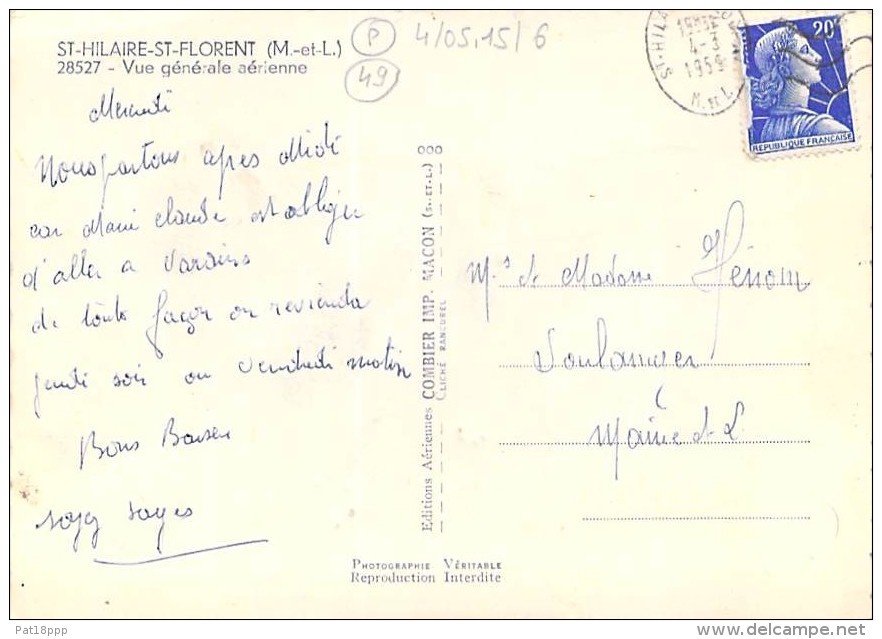 ST-HILAIRE-ST-FLORENT (M.-et-L.)
28527 - Vue générale aérienne
P
49
4/05.15/6
4-3
1959
M. et L.
20F
REPUBLIQUE FRANÇAISE
Mercredi
Nous partons apres Midi
car Marie claude est obligée
d'aller a Varrains
de toute façon on reviendra
jeudi soir ou Vendredi matin
Bons Baisers
soyez sages
Editions Aériennes COMBIER IMP. MACON (S.-ET-L.)
CLICHÉ RANCUREL
Mr et Madame Hénom
Maine et L
PHOTOGRAPHIE VÉRITABLE
Reproduction Interdite
Pat18ppp
delcampe.net